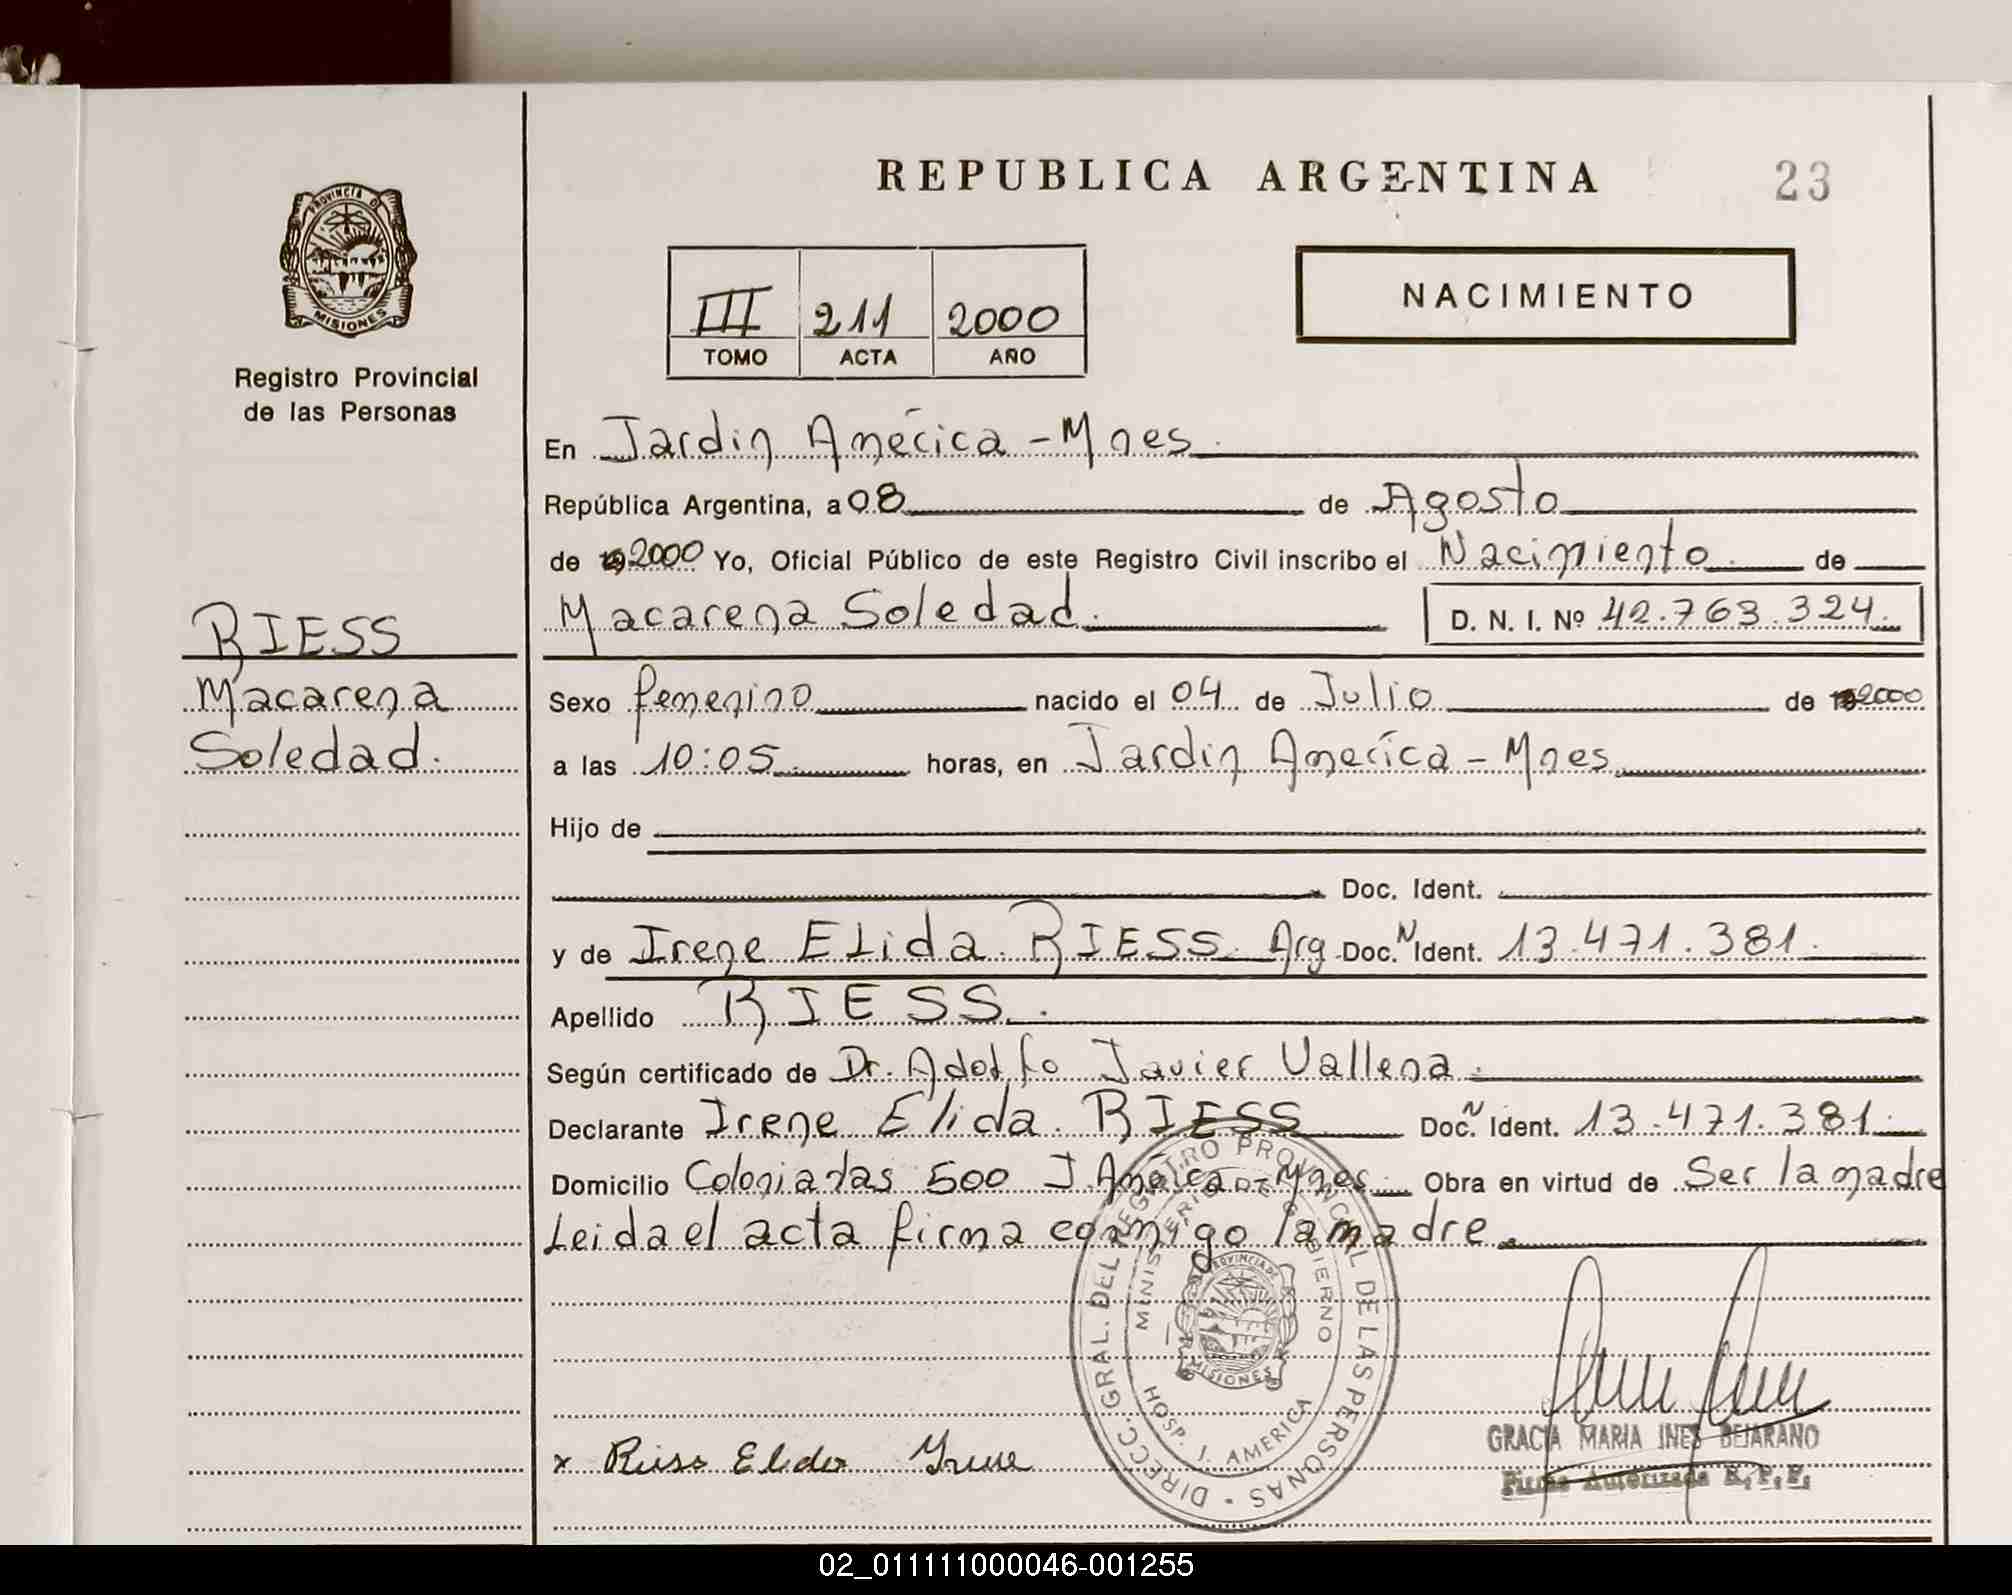 REPUBLICA ARGENTINA
23
PROVINCIA D
MISIONES
Registro Provincial
de las Personas
III 211 2000
TOMO ACTA AÑO
NACIMIENTO
En Jardin América - Mnes.
República Argentina, a 08 de Agosto
de 2000 Yo, Oficial Público de este Registro Civil inscribo el Nacimiento de
Macarena Soledad. D. N. I. Nº 42.763.324.
RIESS
Macarena
Soledad.
Sexo femenino nacido el 04 de Julio de 2000
a las 10:05 horas, en Jardin América - Mnes
Hijo de
Doc. Ident.
y de Irene Elida RIESS. Arg Doc. N Ident. 13.471.381.
Apellido RIESS.
Según certificado de Dr. Adolfo Javier Vallena.
Declarante Irene Elida RIESS Doc. N Ident. 13.471.381.
Domicilio Coloniadas 500 J. América - Mnes Obra en virtud de Ser la madre
Leida el acta firma conmigo la madre.
DIRECC. GRAL. DEL REGISTRO PROVINCIAL DE LAS PERSONAS
MINISTERIO DE GOBIERNO
PROVINCIA DE
MISIONES
HOSP. J. AMERICA
x Riess Elida Irene
GRACIA MARIA INES BEJARANO
Firma Autorizada R.P.P.
02_011111000046-001255